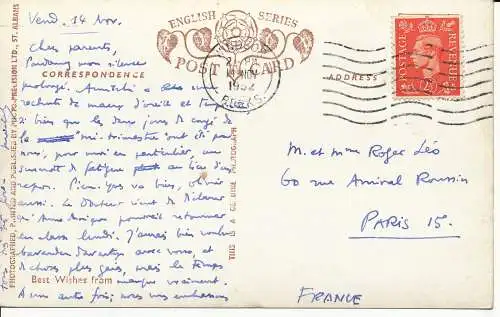 ENGLISH SERIES
POST CARD
CORRESPONDENCE
ADDRESS
Vend. 14 Nov.
Chers parents,
Pardonnez mon silence
prolongé. a eu une
rechute de maux d'oreille et
si bien que les deux jours de congé de
la mi-trimestre ont été pour
nous, pour moi en particulier, un
de fatigue au lieu d'un
repos. va bien, Olivier
aussi. Le docteur vient de
que pourrait retourner
en classe lundi. J'aurais bien voulu
bavarder davantage avec vous, et
de choses plus gaies, mais le temps
manque vraiment.
A une autre fois, nous vous embrassons
Best Wishes from
PHOTOGRAPHED, PRINTED AND PUBLISHED BY PHOTO-PRECISION LTD., ST. ALBANS
THIS IS A GENUINE PHOTOGRAPH
LONDON
14 NOV
1952
POSTAGE
REVENUE
2½D
M. et Mme Roger Léo
60 rue Amiral Roussin
PARIS 15.
FRANCE